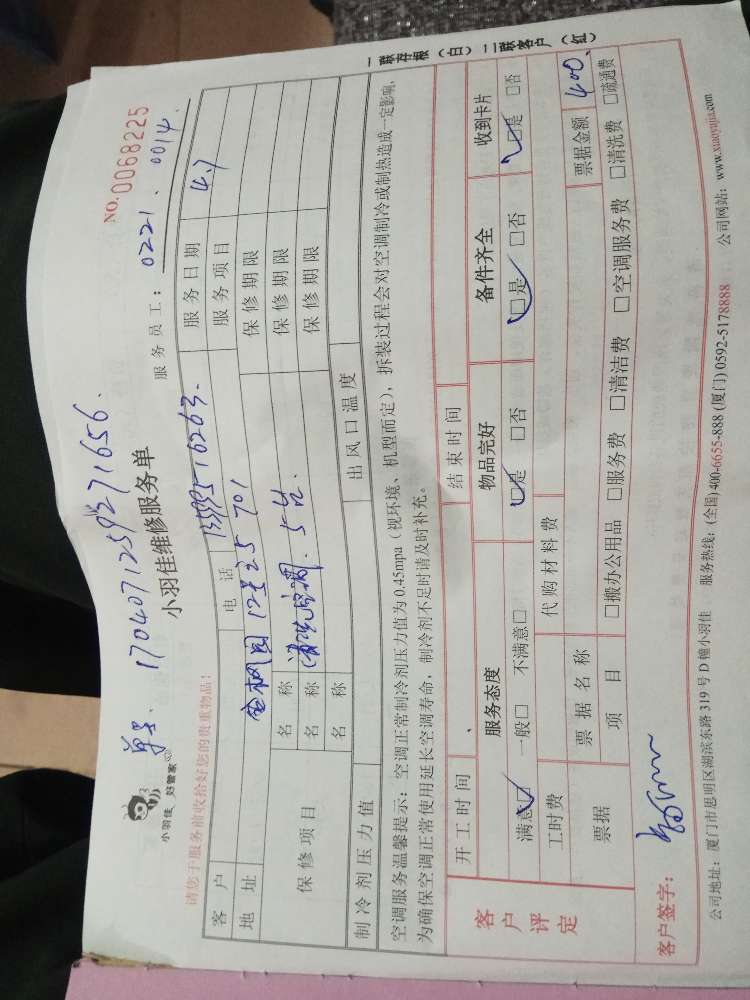 单号. 17040712592 71656.
小羽佳 好管家
小羽佳维修服务单
NO.0068225
请您于服务前收拾好您的贵重物品:
服务员工: 0221. 0014.
客户 电话 服务日期 4.7
地址 12号225 701 服务项目
保修项目 名称 清洗空调. 5台. 保修期限
名称 保修期限
名称 保修期限
制冷剂压力值 出风口温度
空调服务温馨提示: 空调正常制冷剂压力值为0.45mpa(视环境、机型而定), 拆装过程会对空调制冷或制热造成一定影响,
为确保空调正常使用延长空调寿命, 制冷剂不足时请及时补充。
客户评定 开工时间 结束时间
服务态度 物品完好 备件齐全 收到卡片
满意□ 一般□ 不满意□ □是 □否 □是 □否 □是 □否
工时费 代购材料费
票据 票据名称 票据金额 400.
项目 □搬办公用品 □服务费 □清洁费 □空调服务费 □清洗费 □疏通费
客户签字:
公司地址: 厦门市思明区湖滨东路319号D幢小羽佳 服务热线: (全国)400-6655-888 (厦门)0592-5178888 公司网站: www.xiaoyujia.com
一联存根(白)二联客户(红)